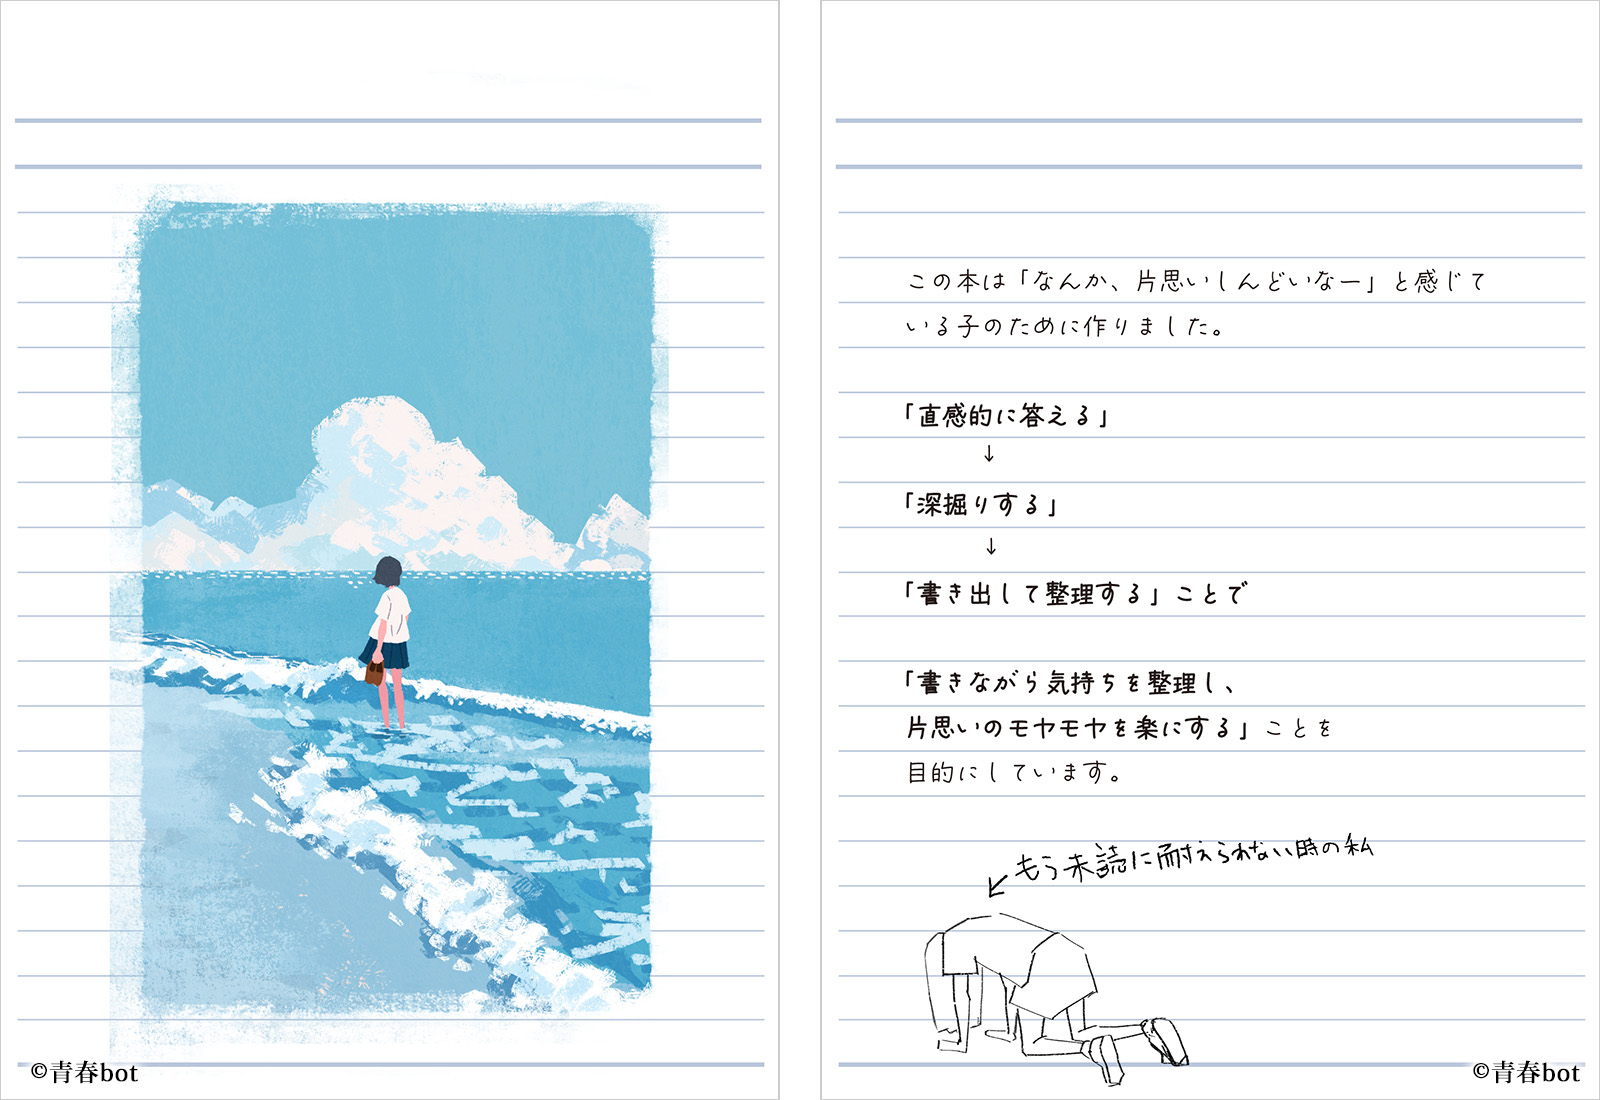 ©青春bot
この本は「なんか、片思いしんどいなー」と感じて
いる子のために作りました。
「直感的に答える」
↓
「深掘りする」
↓
「書き出して整理する」ことで
「書きながら気持ちを整理し、
片思いのモヤモヤを楽にする」ことを
目的にしています。
もう未読に耐えられない時の私
©青春bot